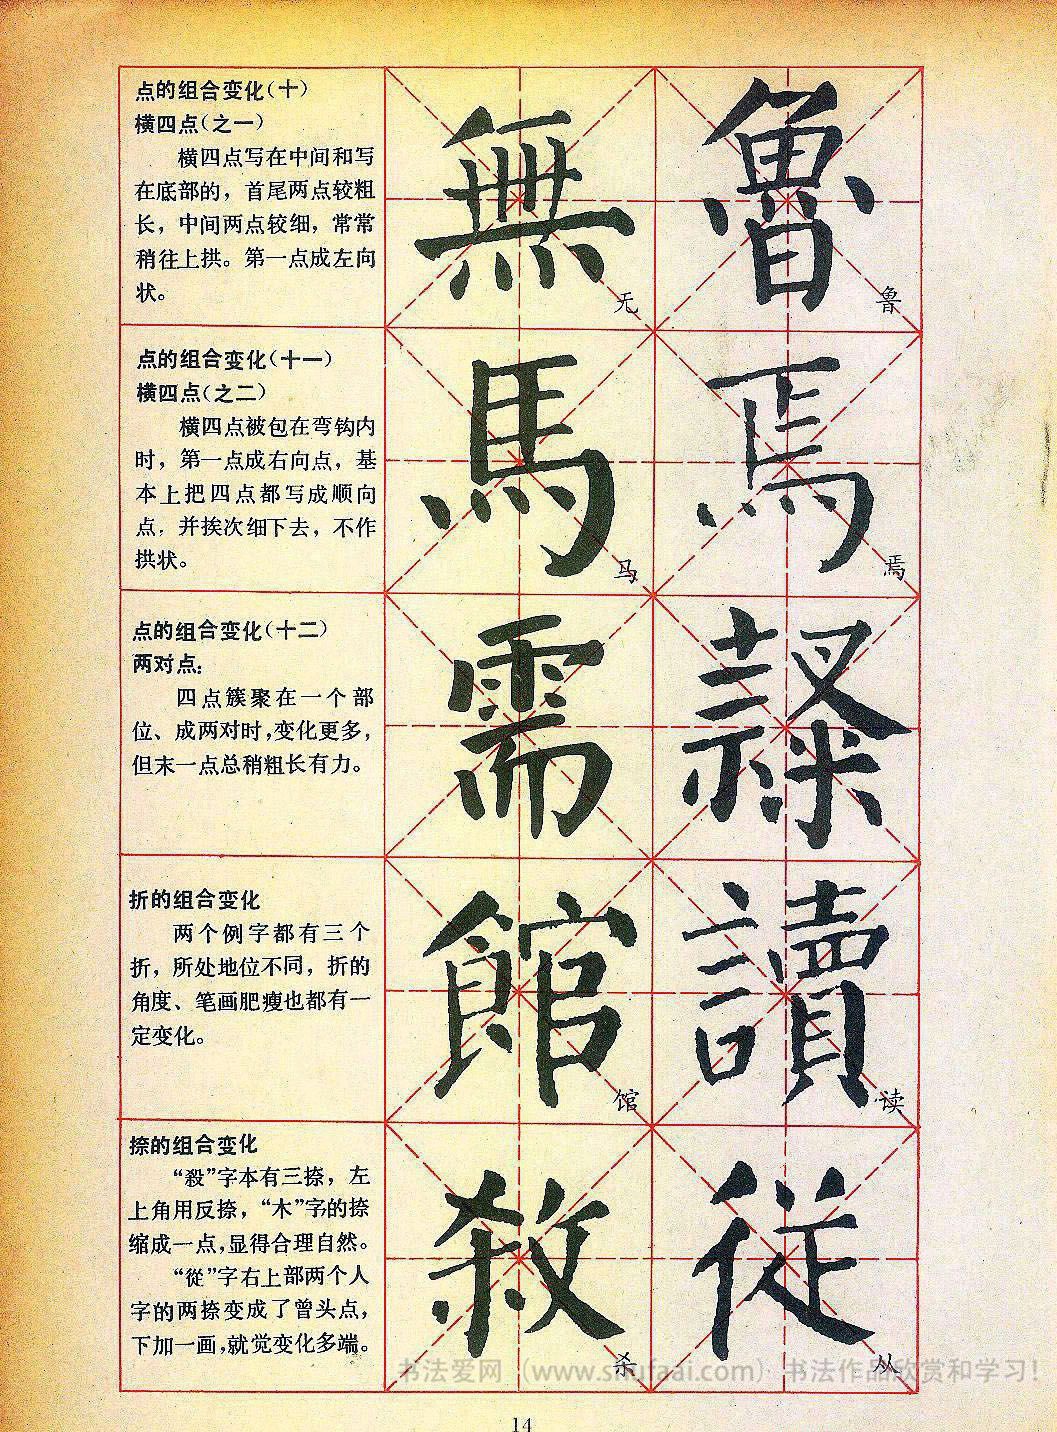 点的组合变化(十)
横四点(之一)
横四点写在中间和写
在底部的，首尾两点较粗
长，中间两点较细，常常
稍往上拱。第一点成左向
状。
無
无
魯
鲁
点的组合变化(十一)
横四点(之二)
横四点被包在弯钩内
时，第一点成右向点，基
本上把四点都写成顺向
点，并挨次细下去，不作
拱状。
馬
马
焉
焉
点的组合变化(十二)
两对点：
四点簇聚在一个部
位、成两对时，变化更多，
但末一点总稍粗长有力。
需
隸
折的组合变化
两个例字都有三个
折，所处地位不同，折的
角度、笔画肥瘦也都有一
定变化。
館
馆
讀
读
捺的组合变化
“殺”字本有三捺，左
上角用反捺，“木”字的捺
缩成一点，显得合理自然。
“從”字右上部两个人
字的两捺变成了曾头点，
下加一画，就觉变化多端。
殺
杀
從
从
书法爱网（www.shufaai.com）书法作品欣赏和学习！
14